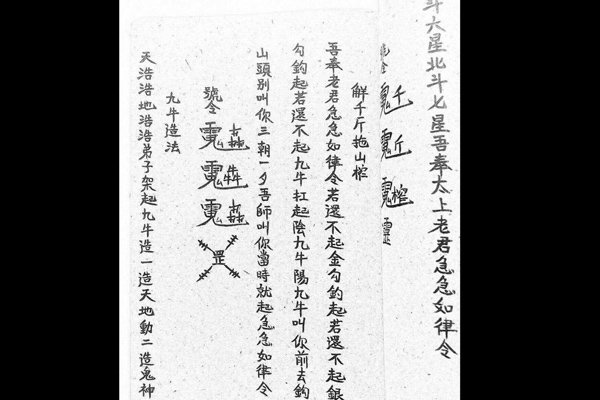 斗六星北斗七星吾奉太上老君急急如律令
千斤榨
觧千斤拖山榨
吾奉老君急急如律令若還不起金勾鈎起若還不起銀
勾鈎起若還不起九牛扛起陰九牛陽九牛叫你前去鈎
山頭別叫你三朝一夕吾師叫你當時就起急急如律令
號令
罡
九牛造法
天浩浩地浩浩弟子架起九牛造一造天地動二造鬼神